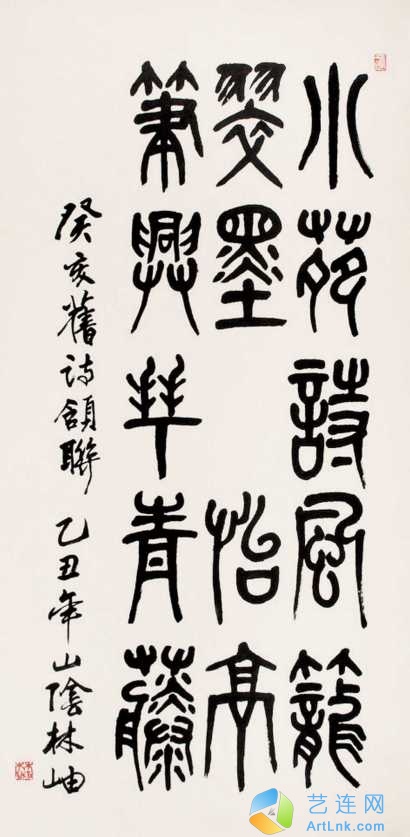 小苑詩風籠
翠墨 怡亭
筆興青藤
癸亥舊詩頷聯 乙丑年山陰林岫
艺连网
ArtLnk.com